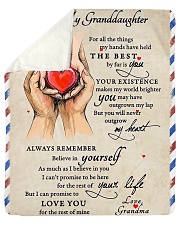 My Granddaughter
For all the things
my hands have held
THE BEST
by far is you
YOUR EXISTENCE
makes my world brighter
you may have
outgrown my lap
But you will never
outgrow
my heart
ALWAYS REMEMBER
Believe in yourself
As much as I believe in you
I can't promise to be here
for the rest of your life
But I can promise to
LOVE YOU
for the rest of mine
Love, Grandma